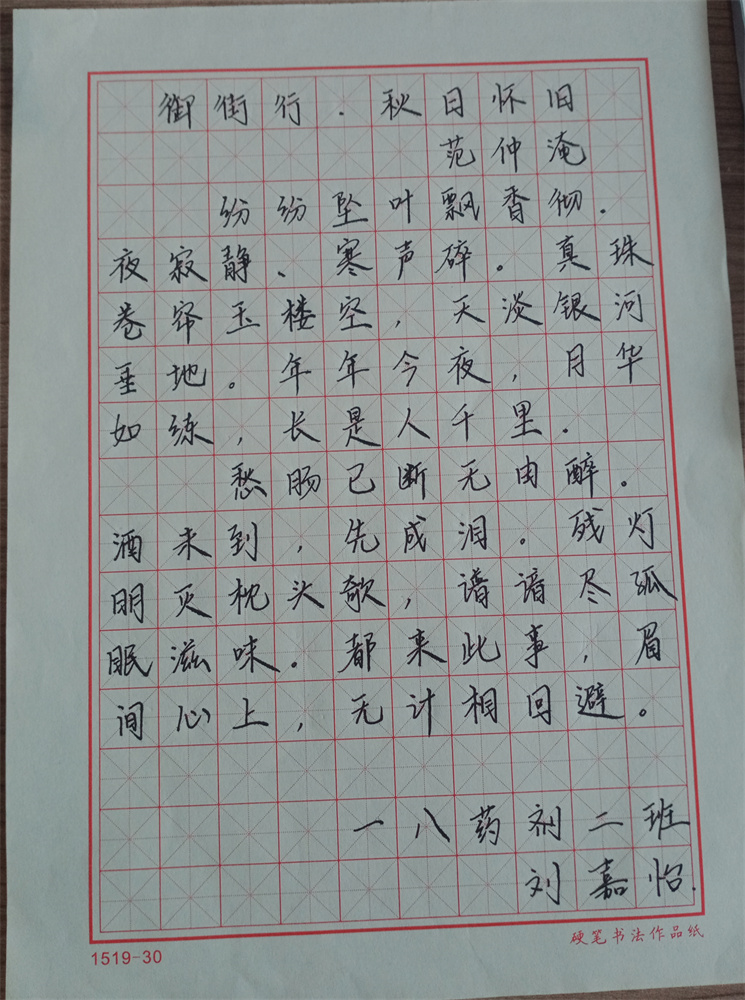 御街行.秋日怀旧
范仲淹
纷纷坠叶飘香彻.
夜寂静、寒声碎。真珠
卷帘玉楼空,天淡银河
垂地。年年今夜,月华
如练,长是人千里.
愁肠已断无由醉。
酒未到,先成泪。残灯
明灭枕头欹,谱谙尽孤
眠滋味。都来此事,眉
间心上,无计相回避。
一八药剂二班
刘嘉怡.
硬笔书法作品纸
1519-30